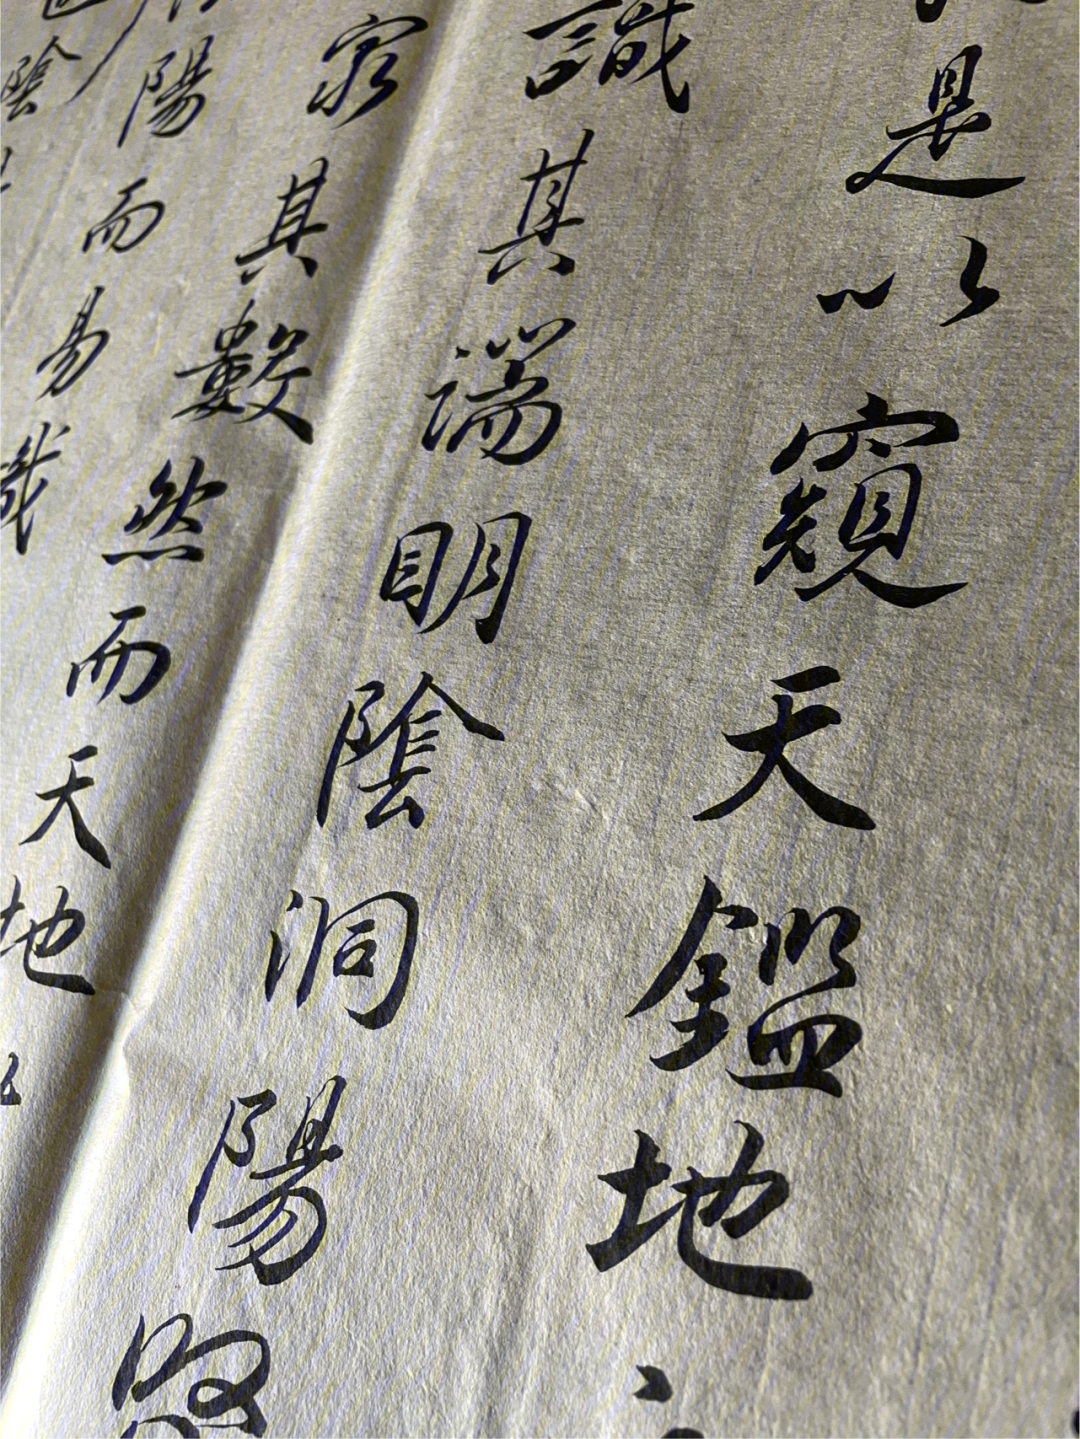 是以窺天鑑地
識其端明陰洞陽賢
窮其數然而天地
陽而易識
陰